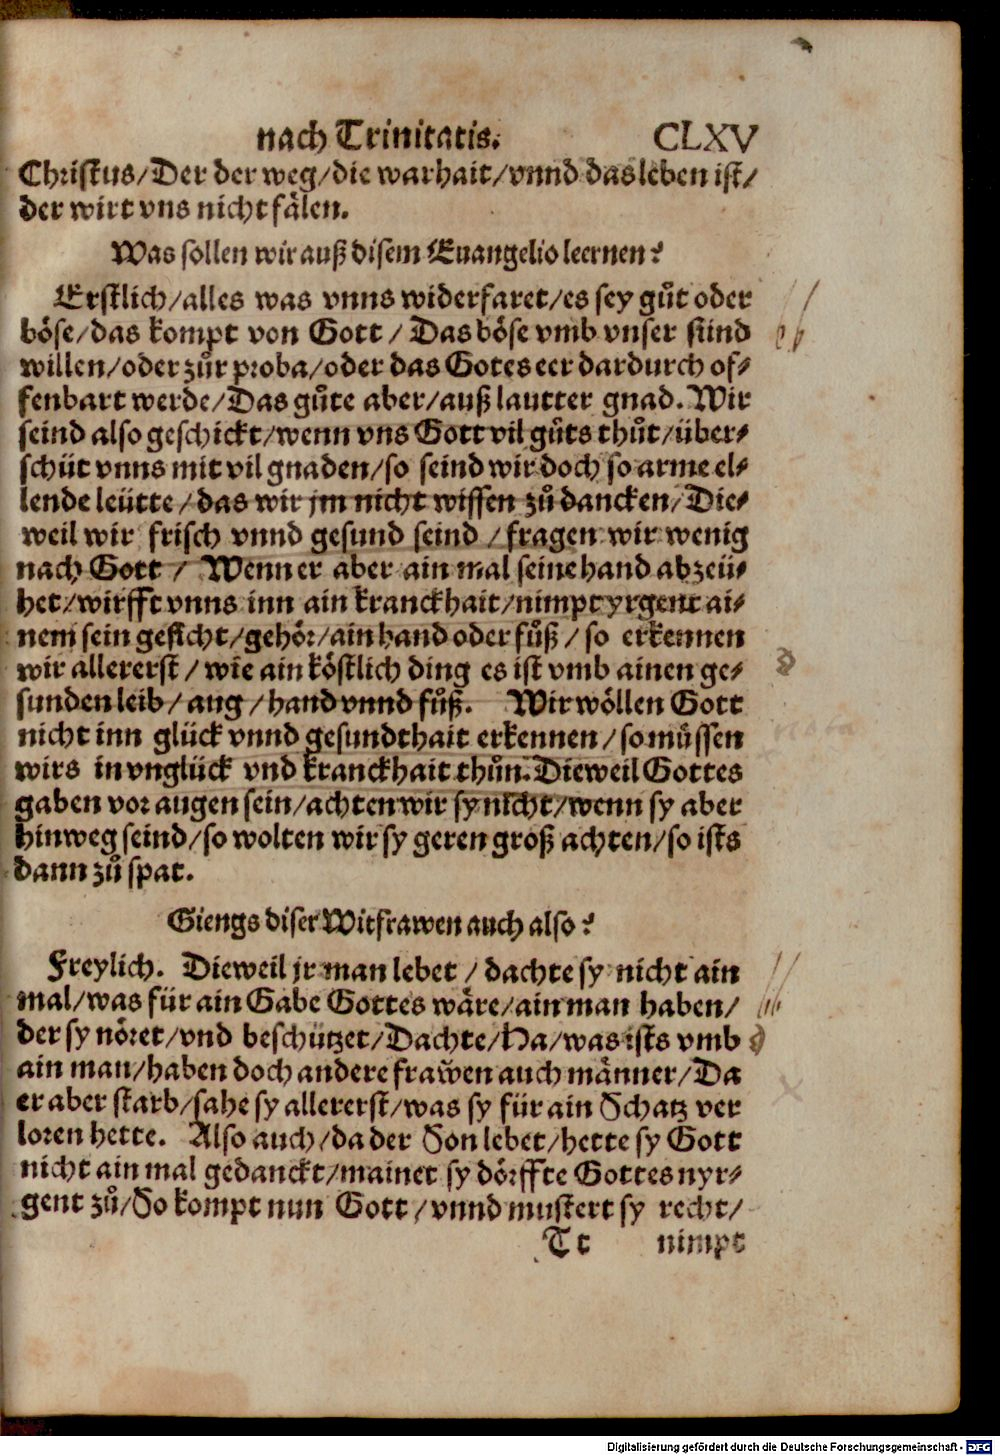 nach Trinitatis. CLXV
Christus/Der der weg/die warhait/vnnd das leben ist/
der wirt vns nicht fälen.
Was sollen wir auß disem Euangelio leernen?
Erstlich/alles was vnns widerfaret/es sey gůt oder
böse/das kompt von Gott/Das böse vmb vnser sünd
willen/oder zůr proba/oder das Gotes eer dardurch of⸗
fenbart werde/Das gůte aber/auß lautter gnad. Wir
seind also geschickt/wenn vns Gott vil gůts thůt/über⸗
schüt vnns mit vil gnaden/so seind wir doch so arme el⸗
lende leütte/das wir jm nicht wissen zů dancken/Die⸗
weil wir frisch vnnd gesund seind/fragen wir wenig
nach Gott/Wenn er aber ain mal seine hand abzeü⸗
het/wirfft vnns inn ain kranckhait/nimpt yrgent ai⸗
nem sein gesicht/gehör/ain hand oder fůß/so erkennen
wir allererst/wie ain köstlich ding es ist vmb ainen ge⸗
sunden leib/aug/hand vnnd fůß. Wir wöllen Gott
nicht inn glück vnnd gesundthait erkennen/so müssen
wirs in vnglück vnd kranckhait thůn. Dieweil Gottes
gaben vor augen sein/achten wir sy nicht/wenn sy aber
hinweg seind/so wolten wir sy geren groß achten/so ists
dann zů spat.
nota
Giengs diser Witfrawen auch also?
Freylich. Dieweil jr man lebet/dachte sy nicht ain
mal/was für ain Gabe Gottes wäre/ain man haben/
der sy nöret/vnd beschützet/Dachte/Ha/was ists vmb
ain man/haben doch andere frawen auch männer/Da
er aber starb/sahe sy allererst/was sy für ain Schatz ver
loren hette. Also auch/da der Son lebet/hette sy Gott
nicht ain mal gedanckt/mainet sy dörffte Gottes nyr⸗
gent zů/So kompt nun Gott/vnnd mustert sy recht/
Tt nimpt
Digitalisierung gefördert durch die Deutsche Forschungsgemeinschaft - DFG